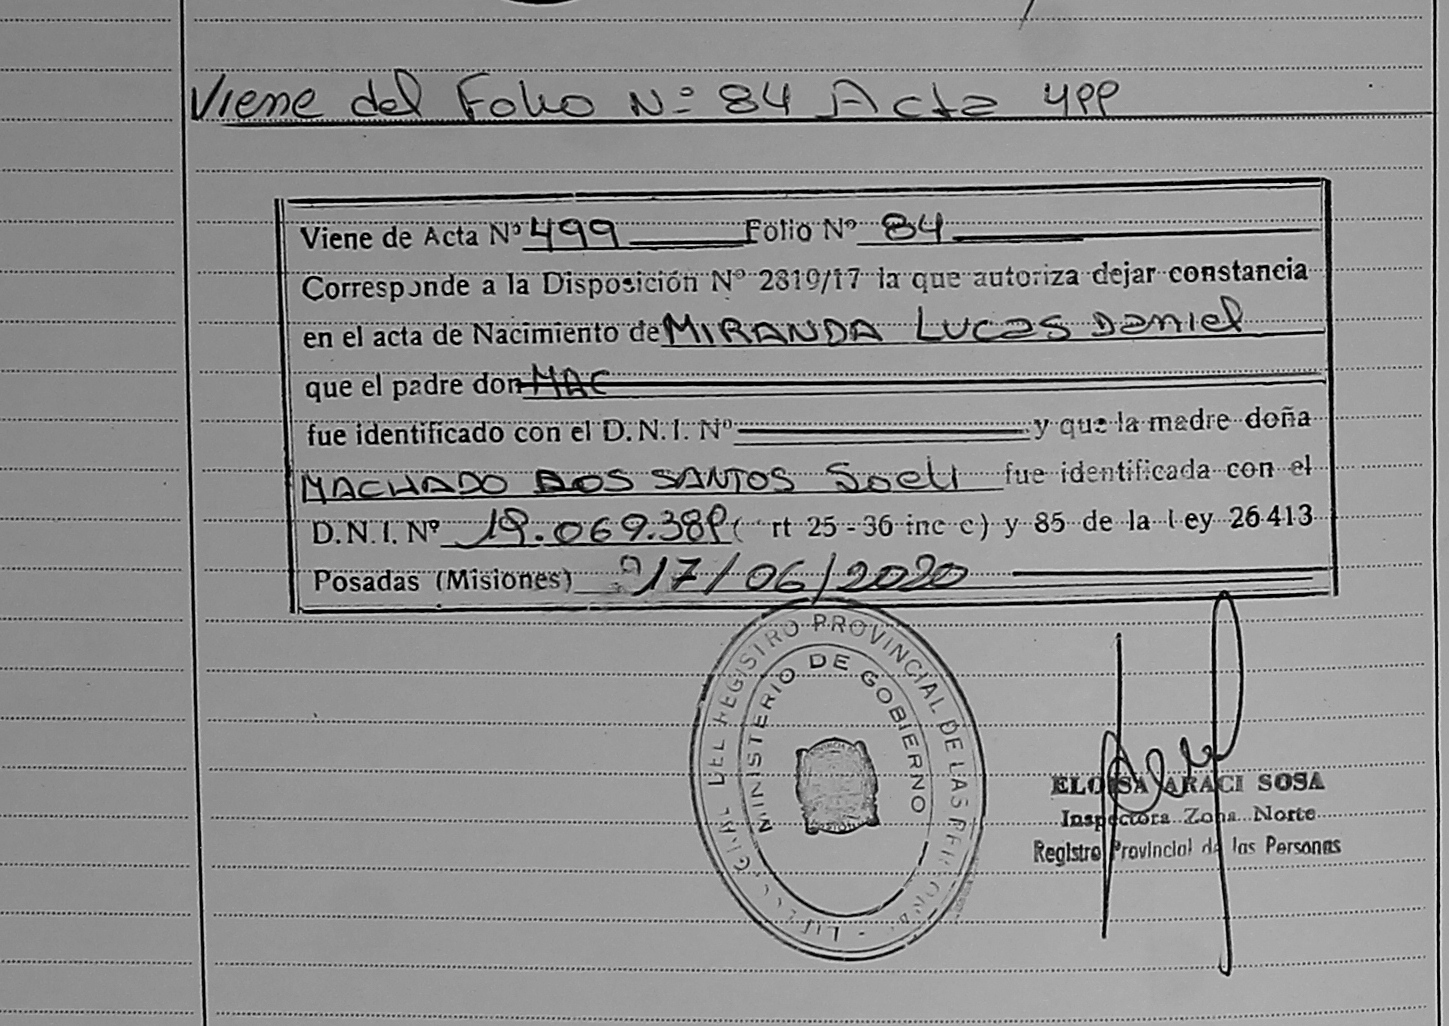 Viene del Folio Nº 84 Acta 499
Viene de Acta Nº 499 Folio Nº 84
Corresponde a la Disposición Nº 2819/17 la que autoriza dejar constancia
en el acta de Nacimiento de MIRANDA Lucas Daniel
que el padre don
fue identificado con el D.N.I. Nº y que la madre doña
MACHADO DOS SANTOS Soeli fue identificada con el
D.N.I. Nº 19.069.389 ( rt 25-36 inc c) y 85 de la Ley 26413
Posadas (Misiones) 17/06/2020
DEL REGISTRO PROVINCIAL DE LAS PERSONAS
MINISTERIO DE GOBIERNO
ELOISA ARACI SOSA
Inspectora Zona Norte
Registro Provincial de las Personas